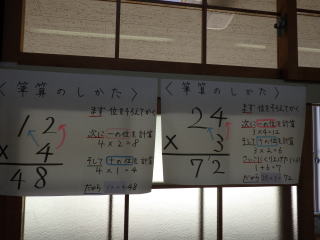 〈筆算のしかた〉
12
× 4
48
まず 位をそろえてかく
次に 一の位を計算
4×2=8
そして 十の位を計算
4×1=4
だから 48
〈筆算のしかた〉
24
× 3
72
まず 位をそろえてかく
次に 一の位を計算
3×4=12
そして 十の位を計算
3×2=6
1+6=7
だから 72